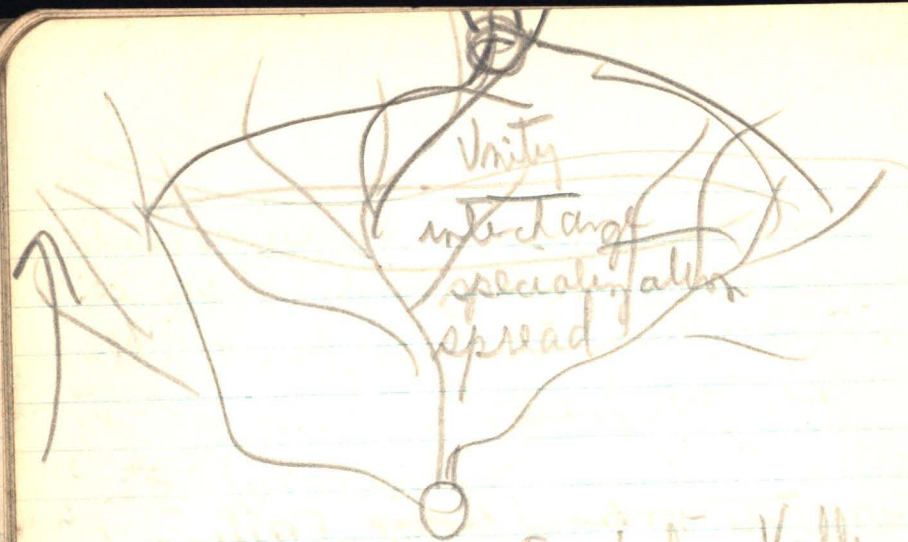 Unity
interchange
specialization
spread